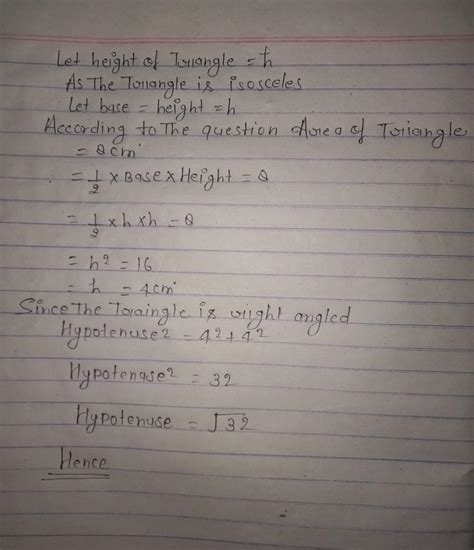 Let height of Triangle = h
As The Triangle is isosceles
Let base = height = h
According to The question Area of Triangle
= 8cm
= 1/2 × Base × Height = 8
= 1/2 × h × h = 8
= h² = 16
= h = 4cm
Since The Traingle is right angled
Hypotenuse2 = 4² + 4²
Hypotenuse² = 32
Hypotenuse = √32
Hence